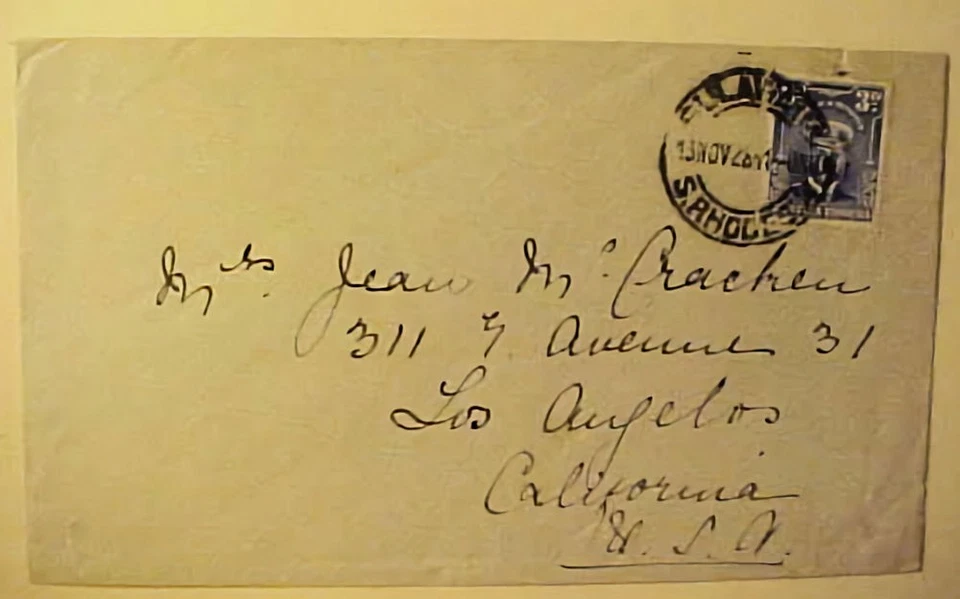 3D
13 NOV 28
S. RHODES
Mrs. Jean Mc Cracken
311 Avenue 31
Los Angelos
California
U. S. A.